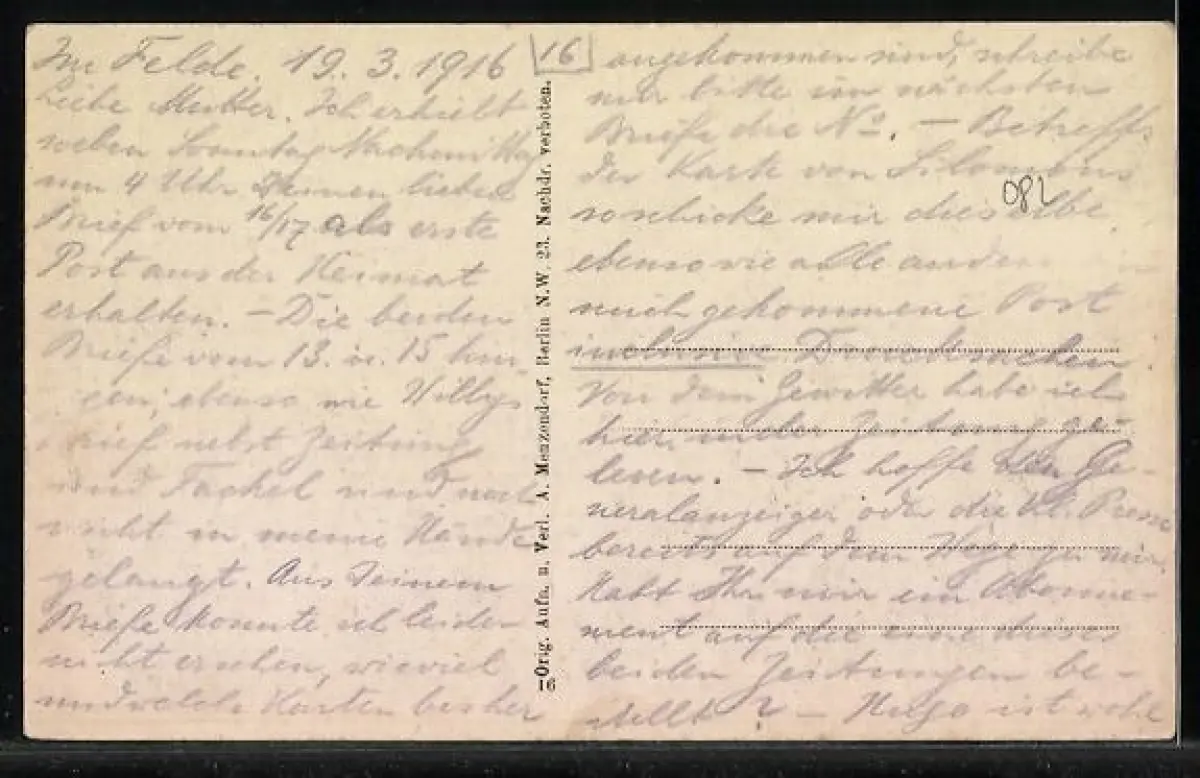 Im Felde. 19. 3. 1916
Liebe Mutter. Ich erhielt
soeben Sonntag Nachmittag
um 4 Uhr Deinen lieben
Brief vom 16/17 als erste
Post aus der Heimat
erhalten. – Die beiden
Briefe vom 13. u. 15
ebenso wie Willys
Brief nebst Zeitung
und Fackel sind noch
nicht in meine Hände
gelangt. Aus Deinem
Briefe konnte ich leider
nicht ersehen, wieviel
und welche Karten bisher
16
–Orig. Aufn. u. Verl. A. Menzendorf, Berlin N.W. 23. Nachdr. verboten.
16
angekommen sind, schreibe
mir bitte im nächsten
Briefe die No. – Betreffs
der Karte von
so schicke mir dieselbe
082
ebenso wie alle andere
gekommene Post
inclusive Drucksachen
Von dem Gewitter habe ich
hier in der Zeitung ge-
lesen. – Ich hoffe den Ge-
neralanzeiger oder die kl. Presse
bereits auf dem Wege zu mir.
Habt Ihr mir ein Abonne-
ment auf die eine dieser
beiden Zeitungen be-
stellt? – Hugo ist wohl